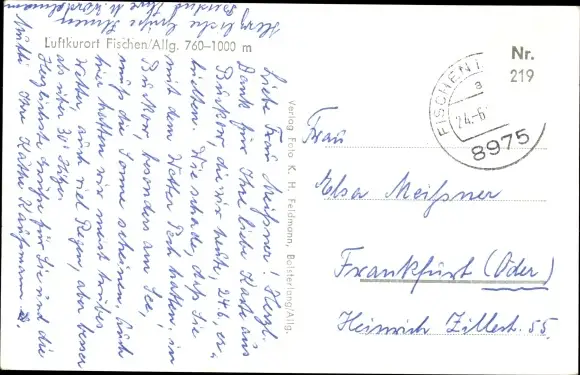 Luftkurort Fischen/Allg. 760–1000 m
Liebe Frau Meißner! Herzl.
Dank für Ihre liebe Karte aus
Buckow, die wir heute, 24.6., er-
hielten. Wie schade, daß Sie
mit dem Wetter Pech hatten, in
Buckow, besonders am See,
muß die Sonne scheinen. Auch
hier hatten wir meist trübes
Wetter, auch viel Regen, aber besser
als über 30° Hitze.
Herzlichste Grüße für Sie und die
Mutti Ihre Käthe Kaufmann
Herzliche Grüße Ihnen
Verlag Foto K. H. Feldmann, Bolsterlang/Allg.
Nr.
219
FISCHEN I
a
24.-6
8975
Frau
Elsa Meißner
Frankfurt (Oder)
Heinrich Zillestr. 55.